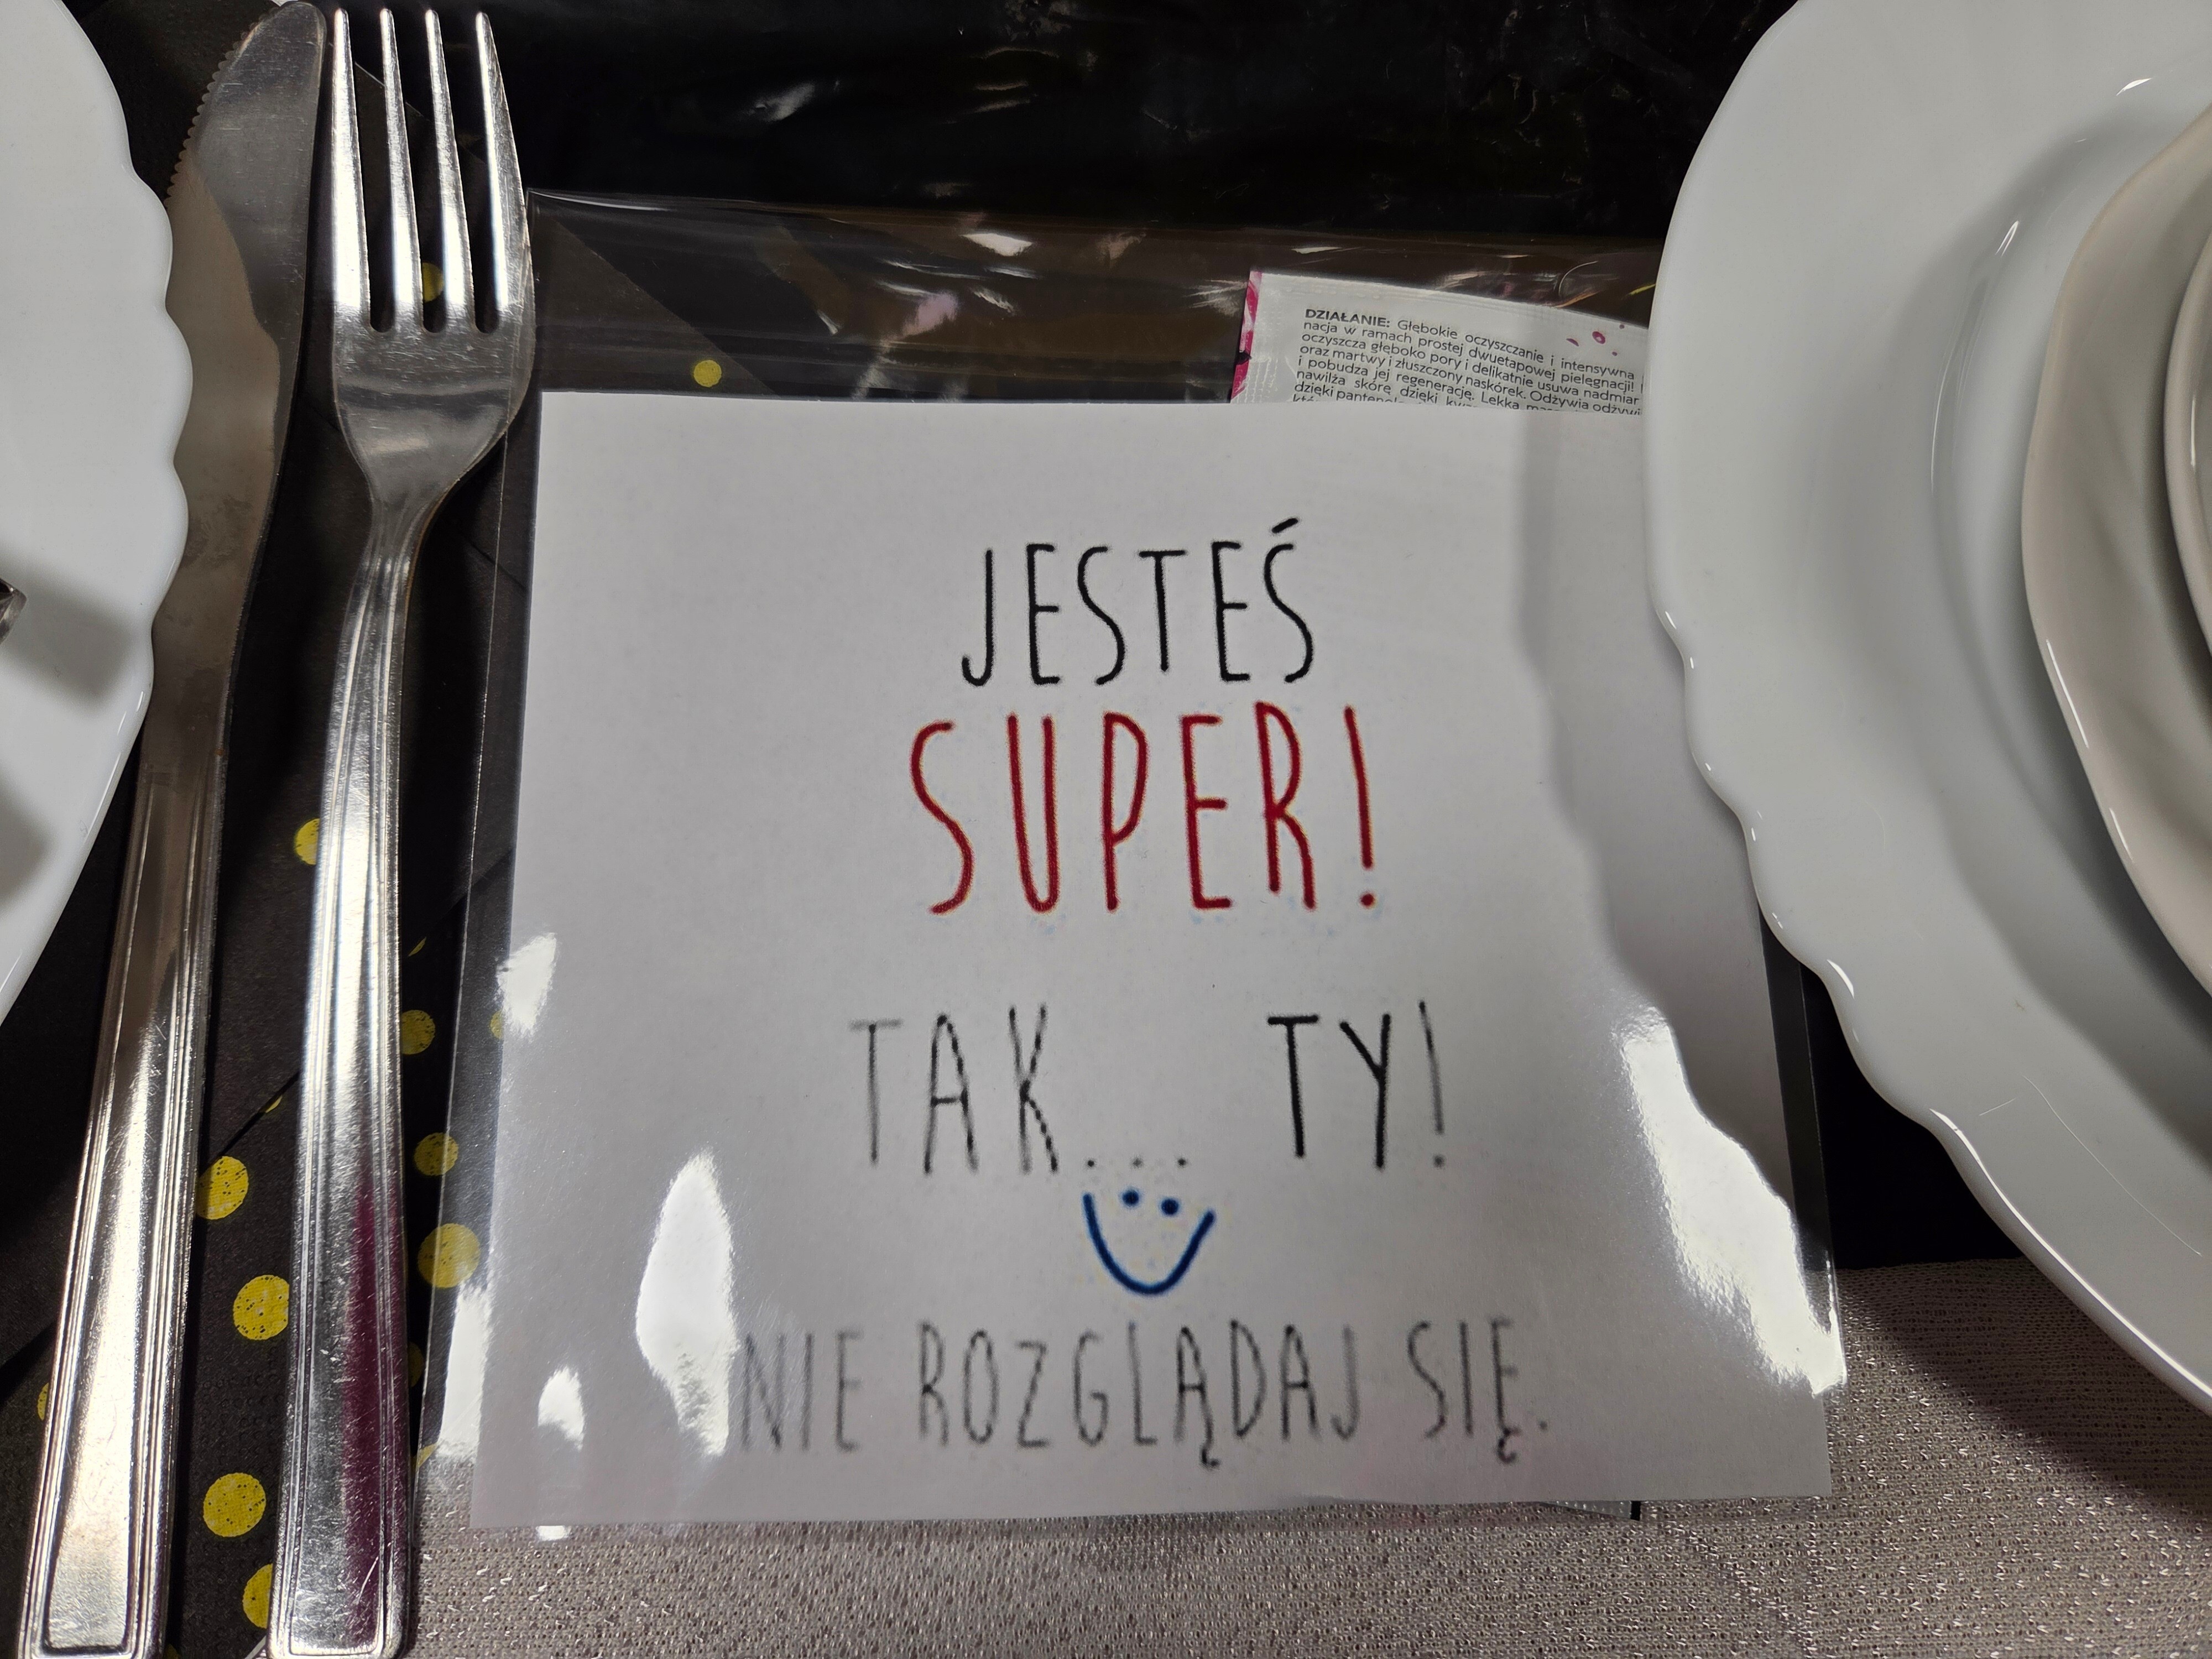 DZIAŁANIE: Głębokie oczyszczanie i intensywna
nacja w ramach prostej dwuetapowej pielęgnacji!
oczyszcza głęboko pory i delikatnie usuwa nadmiar
oraz martwy i złuszczony naskórek. Odżywia
i pobudza jej regenerację. Lekka
nawilża skórę dzięki
dzięki
JESTEŚ
SUPER!
TAK... TY!
NIE ROZGLĄDAJ SIĘ.